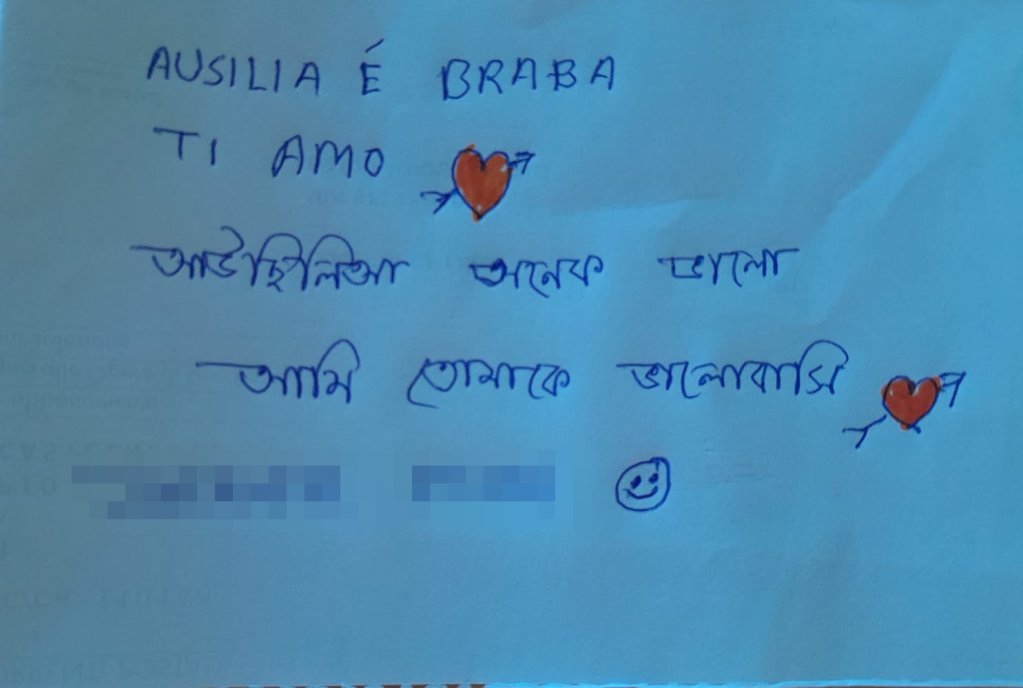 AUSILIA É BRABA
TI AMO
আউছিলিআ অনেক ভালো
আমি তোমাকে ভালোবাসি